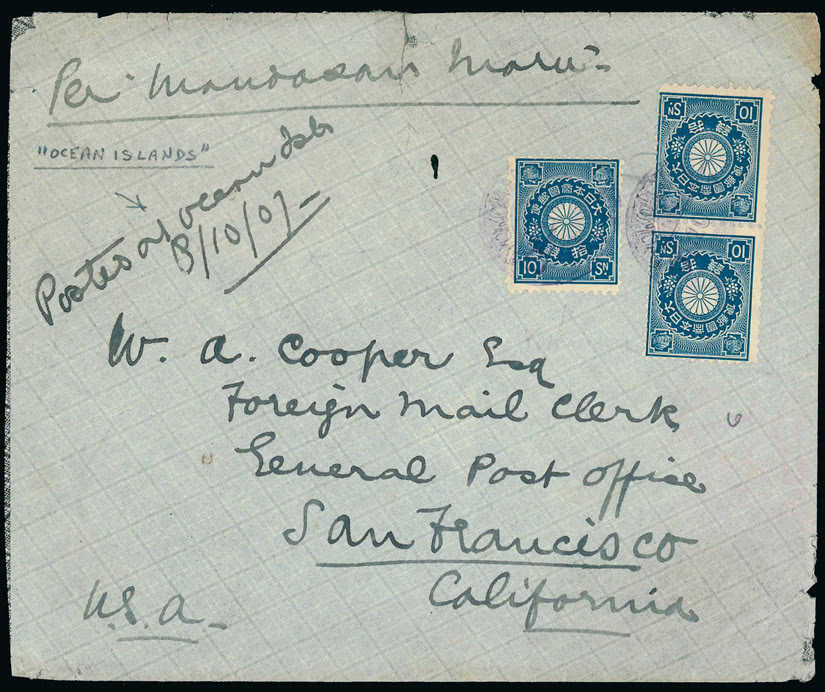 Per Mandasan Maru -
"OCEAN ISLANDS"
Posted at Ocean Isls
8/10/07 -
W. A. Cooper Esq
Foreign Mail Clerk
General Post Office
San Francisco
California
U.S.A -
大日本帝國郵便
拾錢
10 SN
大日本帝國郵便
拾錢
10 SN
大日本帝國郵便
拾錢
10 SN